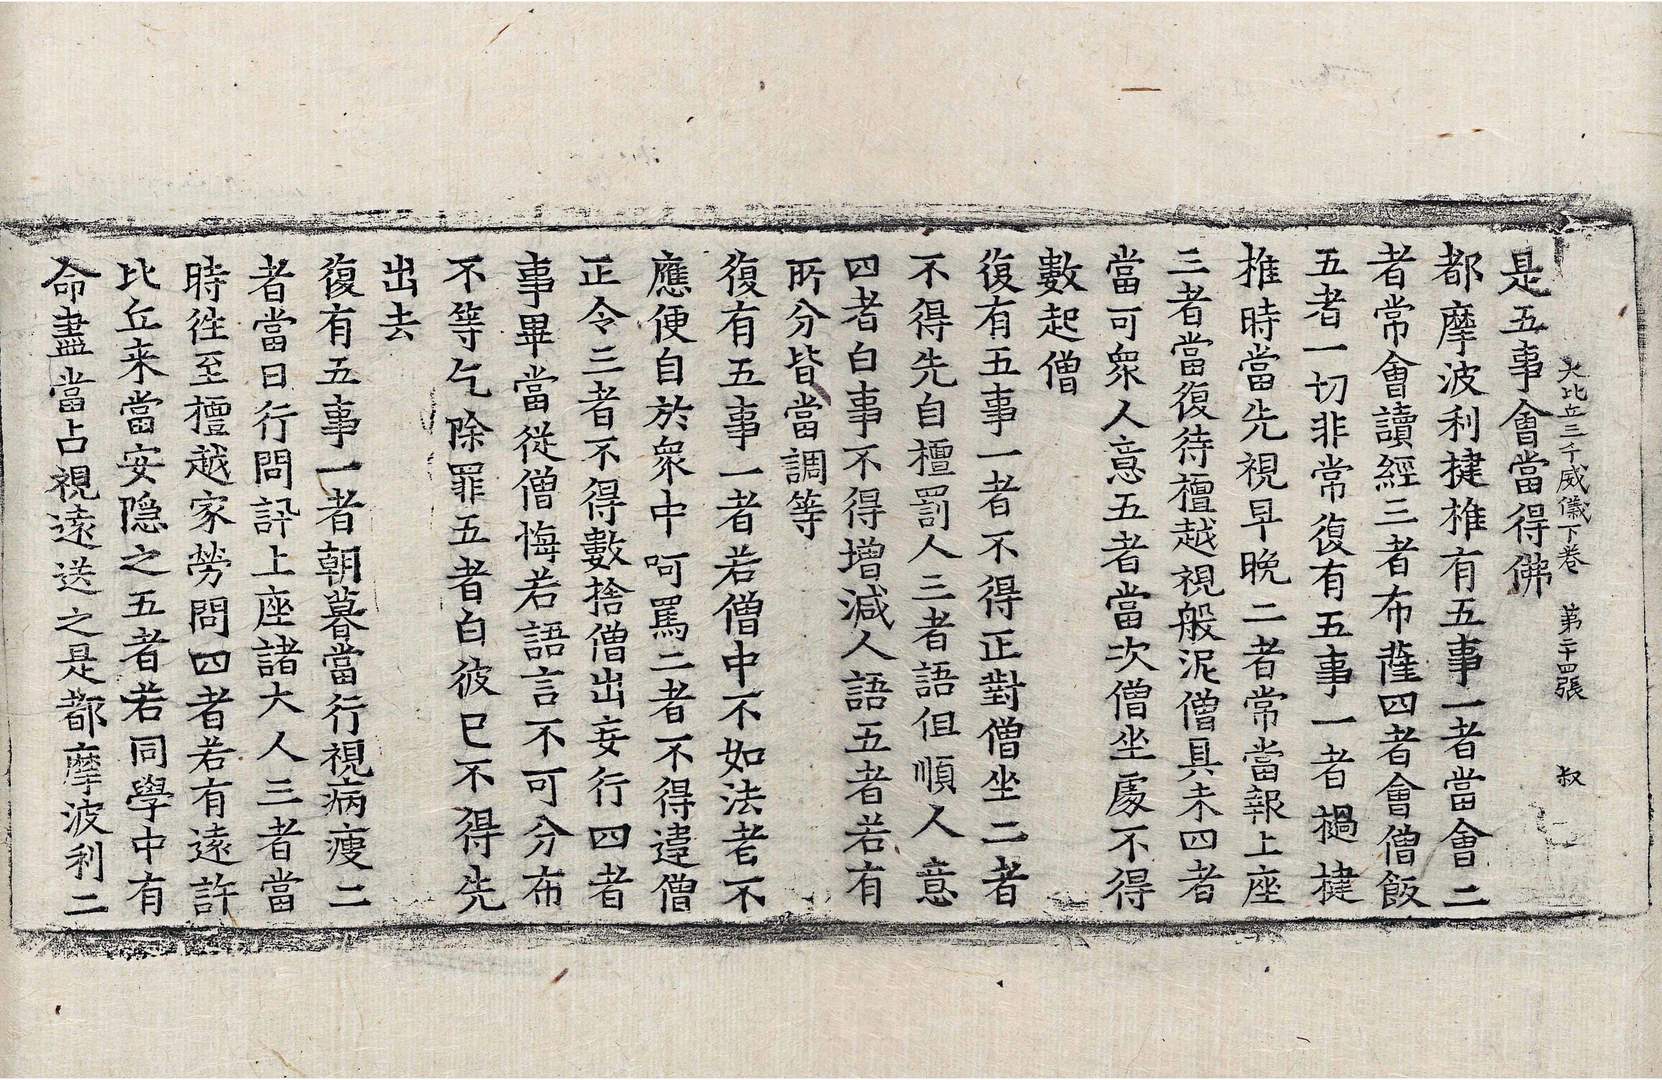 大比丘三千威儀下卷 第二十四張 叔
是五事會當得佛
都摩波利揵椎有五事一者當會二
者常會讀經三者布薩四者會僧飯
五者一切非常復有五事一者檛揵
椎時當先視早晚二者常當報上座
三者當復待檀越視般泥僧具未四者
當可衆人意五者當次僧坐處不得
數起僧
復有五事一者不得正對僧坐二者
不得先自檀罰人三者語但順人意
四者白事不得增減人語五者若有
所分皆當調等
復有五事一者若僧中不如法者不
應便自於衆中呵罵二者不得違僧
正令三者不得數捨僧出妄行四者
事畢當從僧悔若語言不可分布
不等乞除罪五者白彼已不得先
出去
復有五事一者朝暮當行視病瘦二
者當日行問訊上座諸大人三者當
時往至檀越家勞問四者若有遠許
比丘来當安隐之五者若同學中有
命盡當占視遠送之是都摩波利二